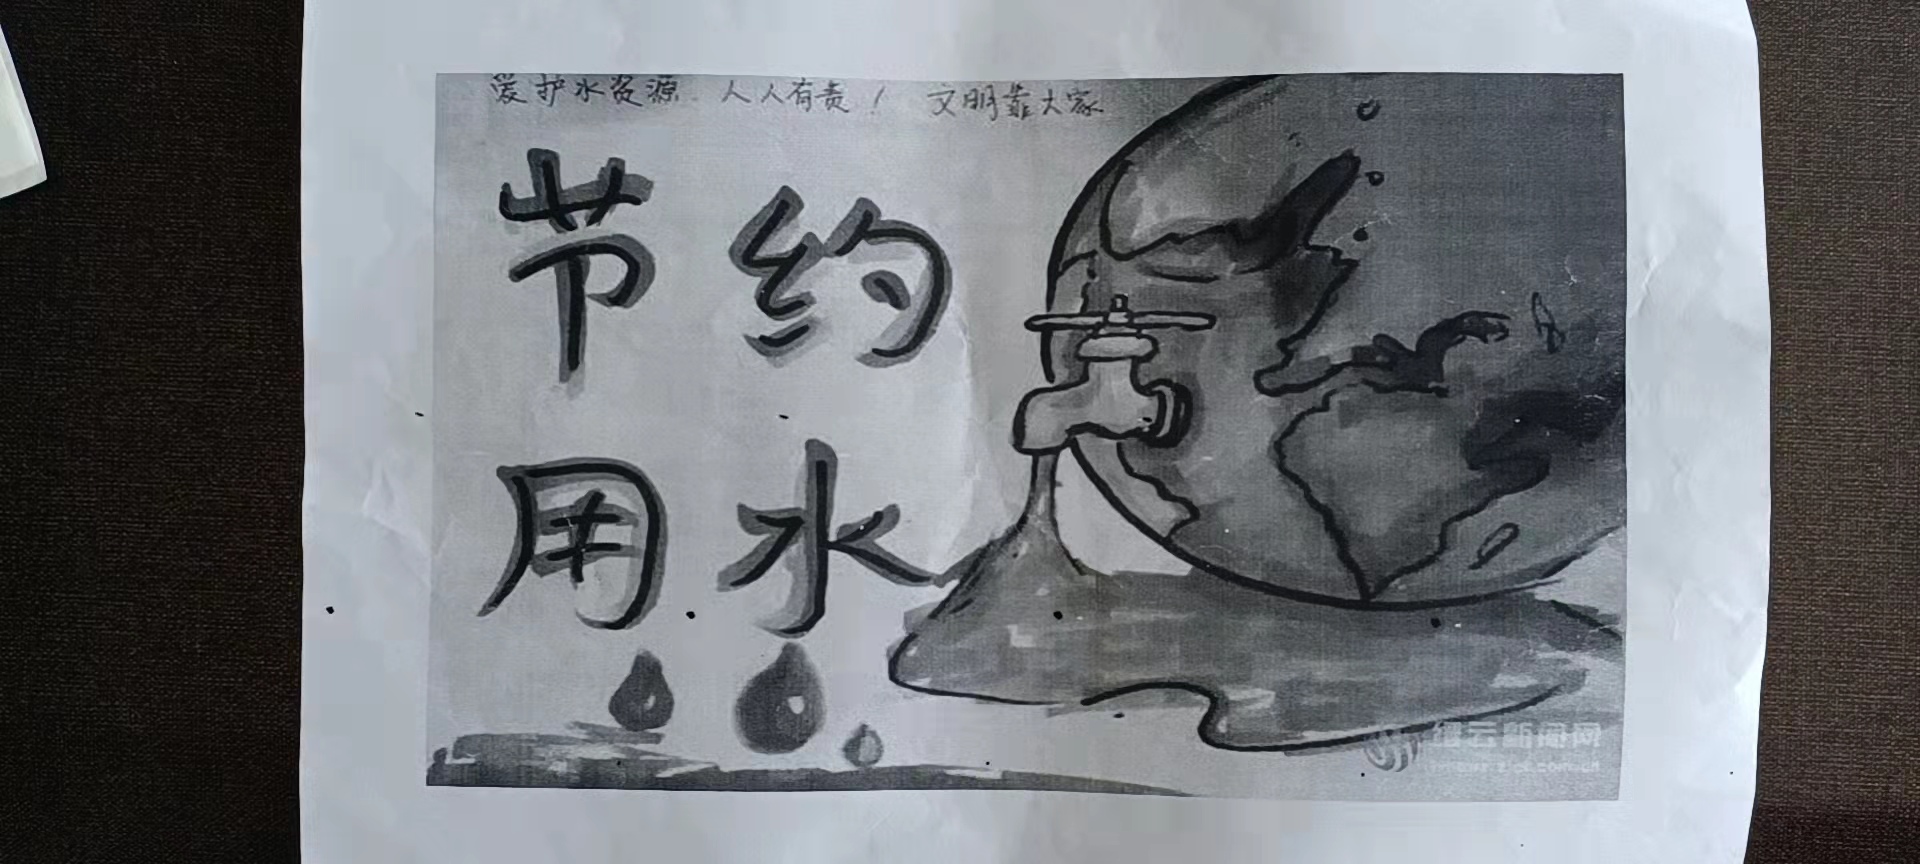 爱护水资源 人人有责！ 文明靠大家
节约
用水
缙云新闻网